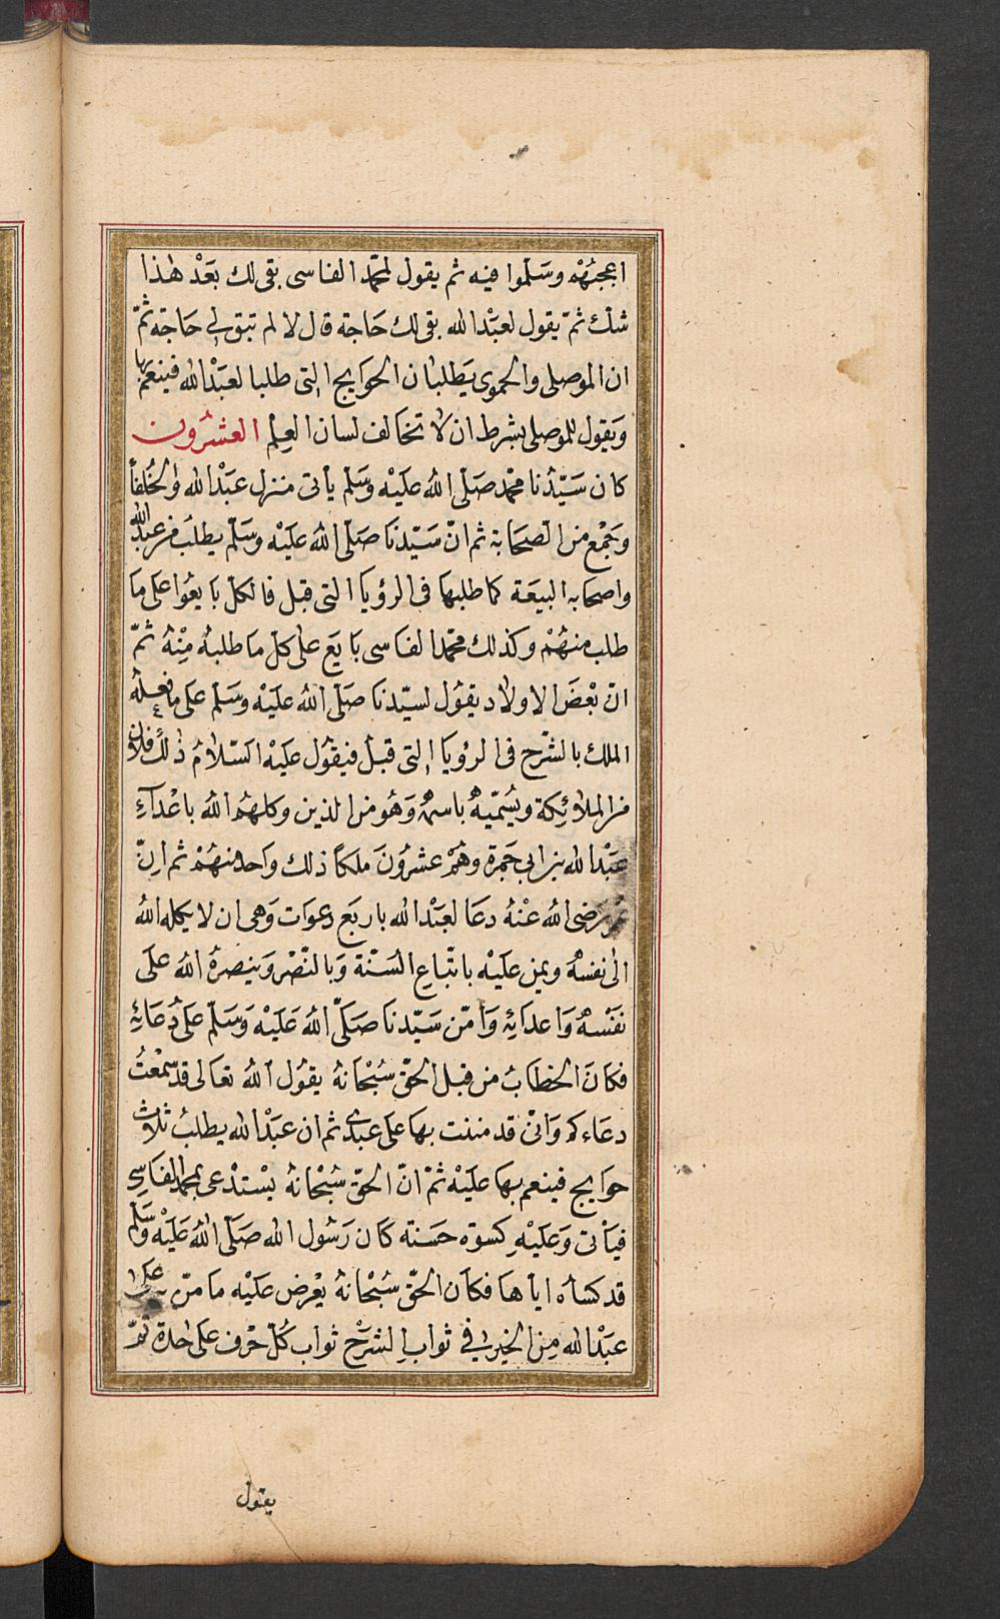 اعجبتهم وسَلّموا فيه ثم يقول لمحمّد الفاسى بقى لك بَعْدَ هٰذا
شك ثمّ يقول لعبْد الله بقى لك حَاجة قال لا لم تبق لى حَاجة ثمّ
ان الموصلى والحموى يَطلبان الحوَايج التى طلبا لعبْد الله فينعم بها
وَيقول للموصلى بشرط ان لا تخالف لسان العِلم العشرُون
كان سَيّدنا محمّد صَلّى اللهُ عليْه وسَلّم يأتى منزل عبْد الله والخُلفاُ
وَجَمْع من الصحَابة ثم انّ سَيّدنَا صَلّى اللهُ عَليْه وسَلّم يطلبُ من عبد الله
واصحابه البيعَة كما طلبها فى الرؤيا التى قبل فالكل بايعُوا على مَا
طلب منهُمْ وكذلك محمّد الفاسى بَايَع على كل ما طلبهُ مِنْهُ ثمّ
انّ بعْضَ الاولاد يقُول لسيّدنا صَلّى اللهُ عَليْه وسَلّم على ما فعله
الملك بالشرْح فى الرؤيَا التى قبل فيقوُل عَليْه السّلامُ ذٰلكَ فلانٌ
من الملائِكة ويُسَمّيهُ باسمهُ وَهُو من الذين وكلهُم اللهُ باعْدآءِ
عَبْد الله بن ابى جَمرَة وَهُمْ عشرُونَ ملكاً ذلك واحد منهُمْ ثم انّ
عُمر رضى الله عَنْهُ دعَا لعبْد الله باربَع دعوات وَهى ان لا يكله اللهُ
الى نفسهُ ويمن عليْه باتباع السَنّة وَبالنّصْر وَينصرهُ اللهُ عَلى
نفْسهُ وَاعدَايْه وَامّن سَيّدنا صَلّى اللهُ عَليْه وَسَلّم على دُعَائِهِ
فكانَ الخطابُ من قبل الحقّ سُبْحَانهُ يقوُل اللهُ تعَالى قد سمْعتُ
دعَاءكم وَانى قد مننت بها على عبْدى ثم ان عبْد الله يطلبُ ثلاث
حوَايج فينعم بها عليْه ثمّ انّ الحقّ سُبْحَانهُ يسْتدْعى بمحمد الفاسِى
فيأتى وَعليْهِ كسوَة حسَنة كان رَسُول الله صَلّى اللهُ عَليْه وسَلّم
قد كساه اياها فكان الحقّ سُبْحَانهُ يعْرض عليْه ما منّ به على
عبْد الله مِن الخير فى ثوابِ الشرْح ثواب كُل حَرْف على حِدة ثمّ
يقول